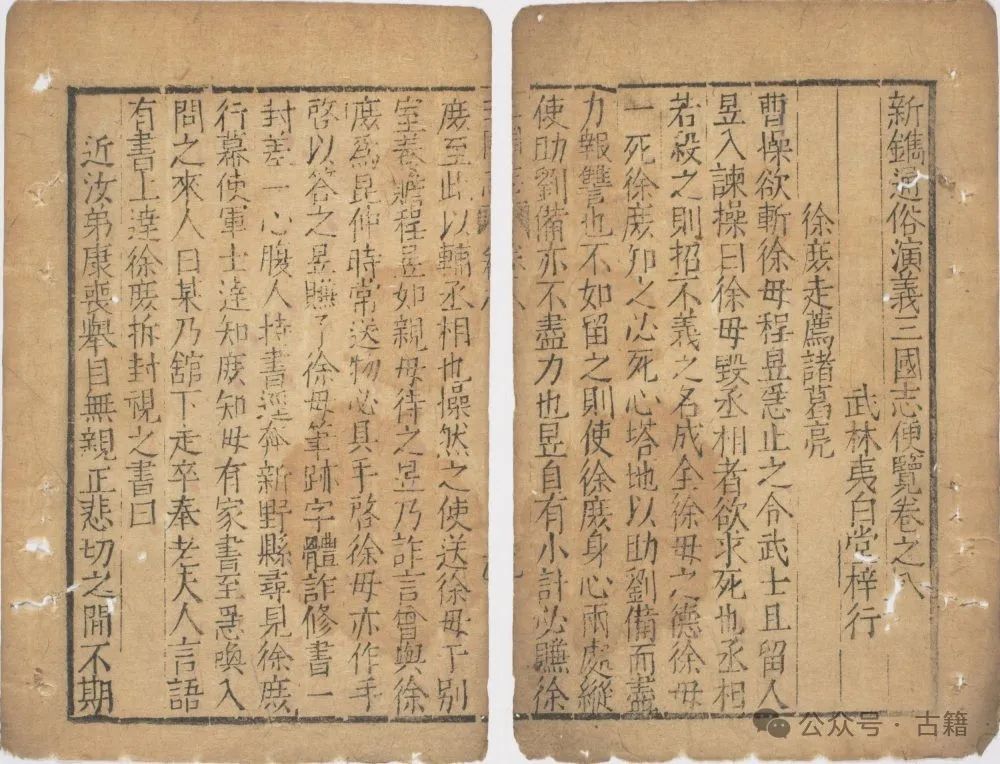 新鐫通俗演義三國志便覽卷之八
武林夷白堂梓行
徐庶走薦諸葛亮
曹操欲斬徐母程昱急止之令武士且留人
昱入諫操曰徐母毀丞相者欲求死也丞相
若殺之則招不義之名成全徐母之德徐母
一死徐庶知之必死心塔地以助劉備而盡
力報讐也不如留之則使徐庶身心兩處縱
使助劉備亦不盡力也昱自有小計必賺徐
庶至此以輔丞相也操然之使送徐母于別
室養贍程昱如親母待之昱乃詐言曾與徐
庶為昆仲時常送物必具手啓徐母亦作手
啓以答之昱賺了徐母筆跡字體詐修書一
封差一心腹人持書逕奔新野縣尋見徐庶
行幕使軍士達知庶知母有家書至急喚入
問之來人曰某乃舘下走卒奉老夫人言語
有書上達徐庶拆封視之書曰
近汝弟康喪舉目無親正悲切之間不期
公众号·古籍